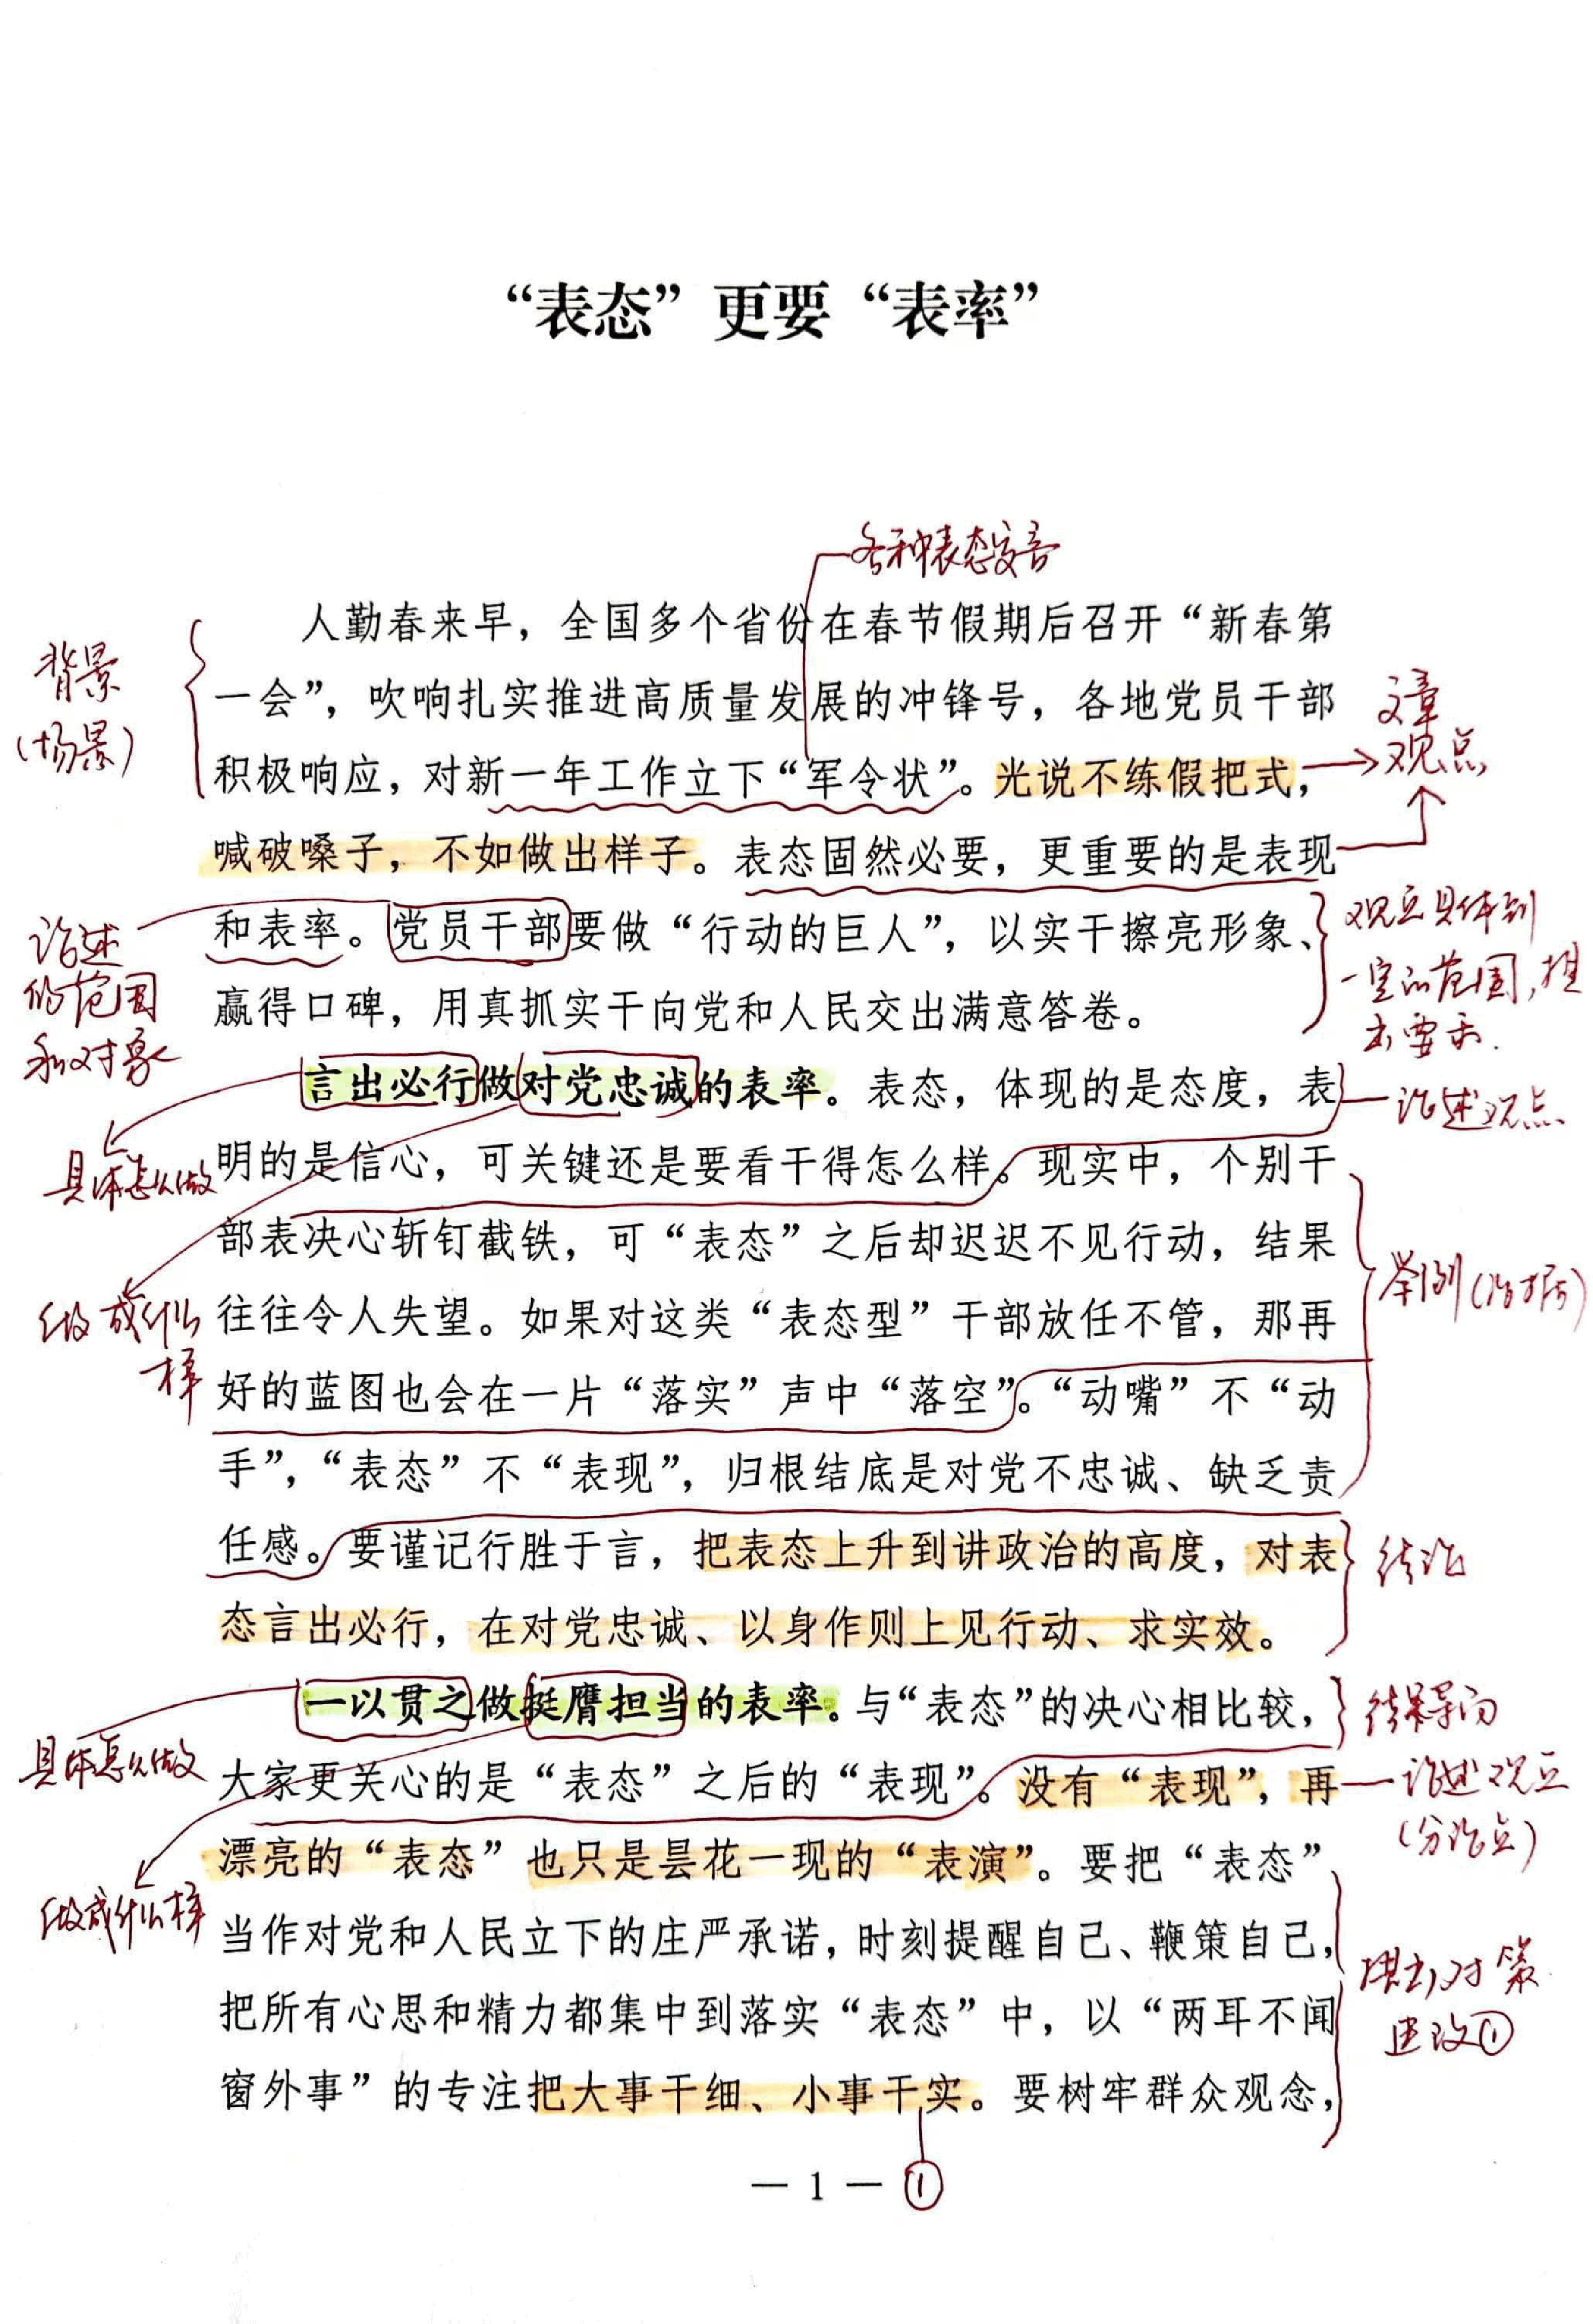 “表态”更要“表率”
各种表态发言
人勤春来早，全国多个省份在春节假期后召开“新春第
一会”，吹响扎实推进高质量发展的冲锋号，各地党员干部
积极响应，对新一年工作立下“军令状”。光说不练假把式，
喊破嗓子，不如做出样子。表态固然必要，更重要的是表现
和表率。党员干部要做“行动的巨人”，以实干擦亮形象、
赢得口碑，用真抓实干向党和人民交出满意答卷。
言出必行做对党忠诚的表率。表态，体现的是态度，表
明的是信心，可关键还是要看干得怎么样。现实中，个别干
部表决心斩钉截铁，可“表态”之后却迟迟不见行动，结果
往往令人失望。如果对这类“表态型”干部放任不管，那再
好的蓝图也会在一片“落实”声中“落空”。“动嘴”不“动
手”，“表态”不“表现”，归根结底是对党不忠诚、缺乏责
任感。要谨记行胜于言，把表态上升到讲政治的高度，对表
态言出必行，在对党忠诚、以身作则上见行动、求实效。
一以贯之做挺膺担当的表率。与“表态”的决心相比较，
大家更关心的是“表态”之后的“表现”。没有“表现”，再
漂亮的“表态”也只是昙花一现的“表演”。要把“表态”
当作对党和人民立下的庄严承诺，时刻提醒自己、鞭策自己，
把所有心思和精力都集中到落实“表态”中，以“两耳不闻
窗外事”的专注把大事干细、小事干实。要树牢群众观念，
— 1 —
①
背景
（场景）
论述
的范围
和对象
具体怎么做
做成什么
样
具体怎么做
做成什么样
文章
观点
观点具体到
一定的范围，提
出要求.
论述观点
举例（论据）
结论
结果导向
论述观点
（分论点）
提出对策
建议①